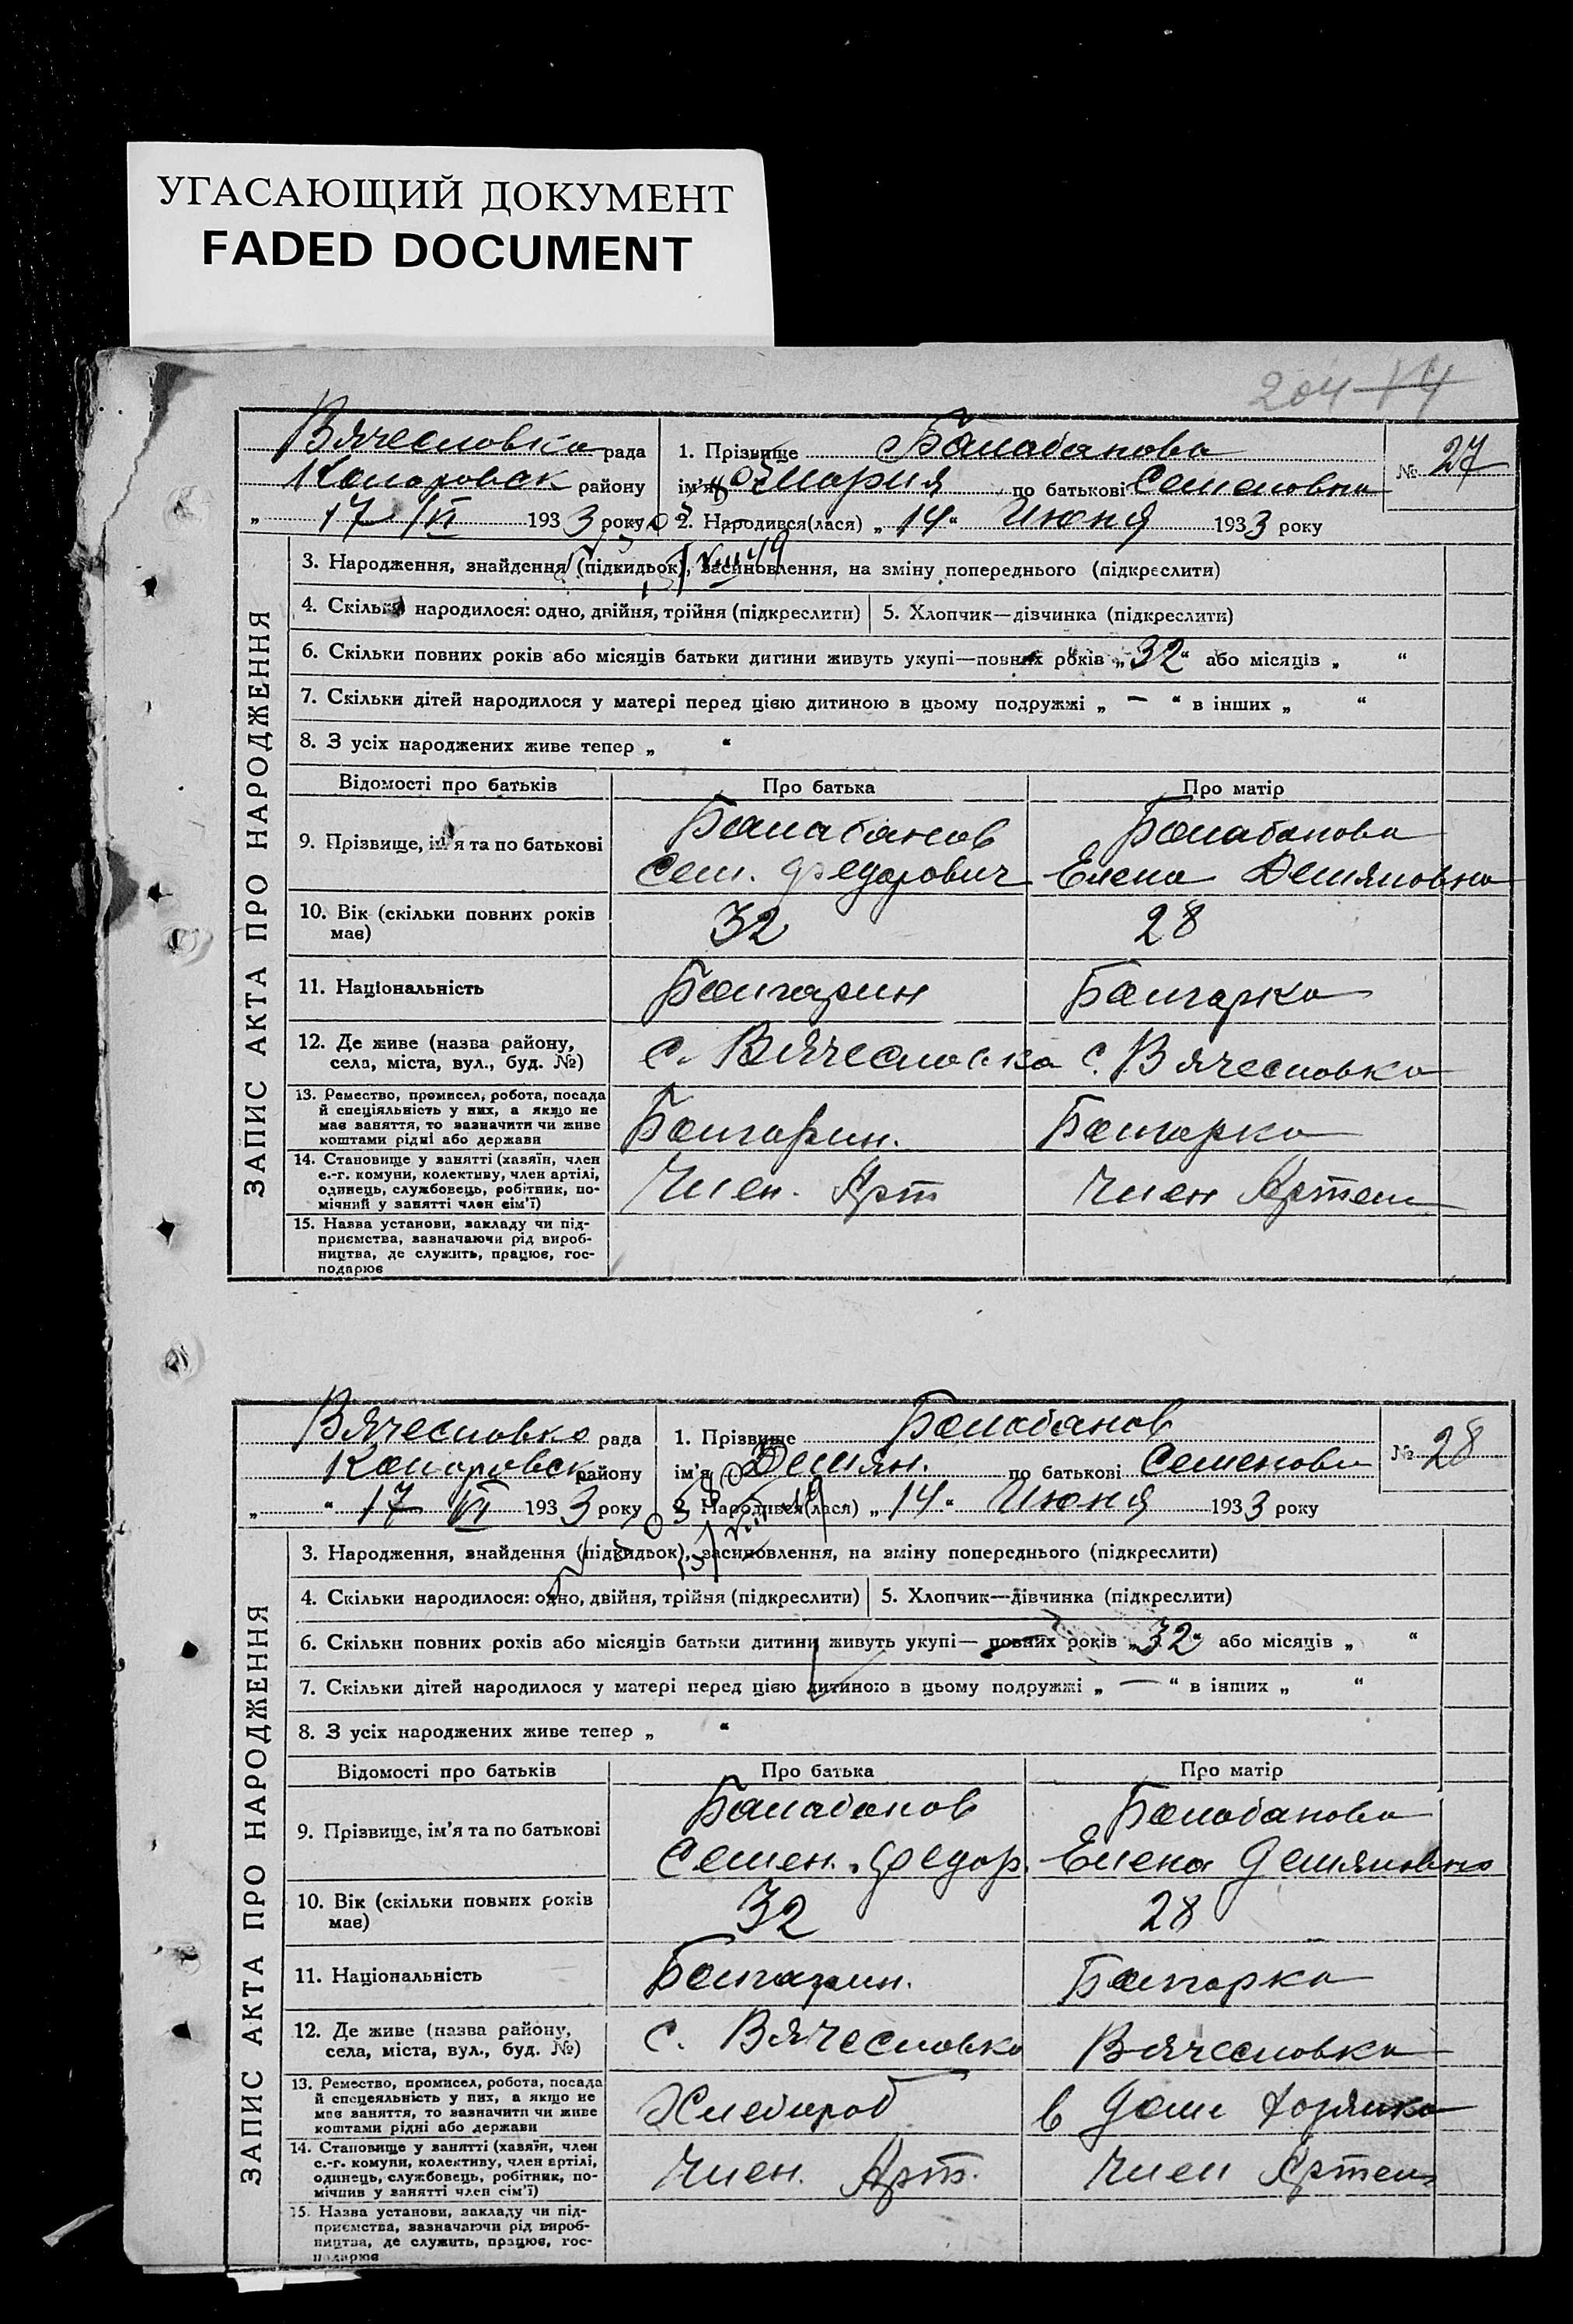 УГАСАЮЩИЙ ДОКУМЕНТ
FADED DOCUMENT
204
Вячеслов­ка рада
району
„ 17 VI 1933 року
1. Прізвище Балабанова
ім'я Мария по батькові Семеновна
2. Народився(лася) „14“ Июня 1933 року
№ 27
ЗАПИС АКТА ПРО НАРОДЖЕННЯ
3. Народження, знайдення (підкидьок), васиновлення, на зміну попереднього (підкреслити)
4. Скільки народилося: одно, двійня, трійня (підкреслити) 5. Хлопчик—дівчинка (підкреслити)
6. Скільки повних років або місяців батьки дитини живуть укупі—повних років „32“ або місяців „ “
7. Скільки дітей народилося у матері перед цією дитиною в цьому подружжі „ — “ в інших „ “
8. З усіх народжених живе тепер „ “
Відомості про батьків Про батька Про матір
9. Прізвище, ім'я та по батькові
Балабанов
Сем. Федорович
Балабанова
Елена Демяновна
10. Вік (скільки повних років
має)
32 28
11. Національність Болгарин Болгарка
12. Де живе (назва району,
села, міста, вул., буд. №)
с. Вячесловка с. Вячесловка
13. Ремество, промисел, робота, посада
й спеціяльність у них, а якщо не
має заняття, то зазначити чи живе
коштами рідні або держави
Болгарин. Болгарка
14. Становище у занятті (хазяїн, член
с.-г. комуни, колективу, член артілі,
одинець, службовець, робітник, по-
мічний у занятті член сім'ї)
Член. Арт Член Артели
15. Назва установи, закладу чи під-
приємства, зазначаючи рід вироб-
ництва, де служить, працює, гос-
подарює
Вячесловка рада
району
„ “ 17 VI 1933 року
1. Прізвище Балабанов
ім'я Демян. по батькові Семенови
2. Народився(лася) „14“ Июня 1933 року
№ 28
ЗАПИС АКТА ПРО НАРОДЖЕННЯ
3. Народження, знайдення (підкидьок), васиновлення, на зміну попереднього (підкреслити)
4. Скільки народилося: одно, двійня, трійня (підкреслити) 5. Хлопчик—дівчинка (підкреслити)
6. Скільки повних років або місяців батьки дитини живуть укупі— повних років „32“ або місяців „ “
7. Скільки дітей народилося у матері перед цією дитиною в цьому подружжі „ — “ в інших „ “
8. З усіх народжених живе тепер „ “
Відомості про батьків Про батька Про матір
9. Прізвище, ім'я та по батькові
Балабанов
Семен. Федор.
Балабанова
Елена Демяновна
10. Вік (скільки повних років
має)
32 28
11. Національність Болгарин. Болгарка
12. Де живе (назва району,
села, міста, вул., буд. №)
с. Вячесловка Вячесловка
13. Ремество, промисел, робота, посада
й спецеяльність у них, а якщо не
має заняття, то зазначити чи живе
коштами рідні або держави
Хлебороб в Доми
14. Становище у занятті (хазяїн, член
с.-г. комуни, колективу, член артілі,
одинець, службовець, робітник, по-
мічнив у занятті член сім'ї)
Член. Арт. Член Артели
15. Назва установи, закладу чи під-
приємства, зазначаючи рід вироб-
ництва, де служить, працює, гос-
подарює